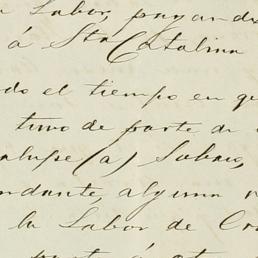 Labor, pagando
á Sta Catalina
do el tiempo en que
tuvo de parte de
alupe (a) Sabas,
ndante, alguna
la Labor de Cr